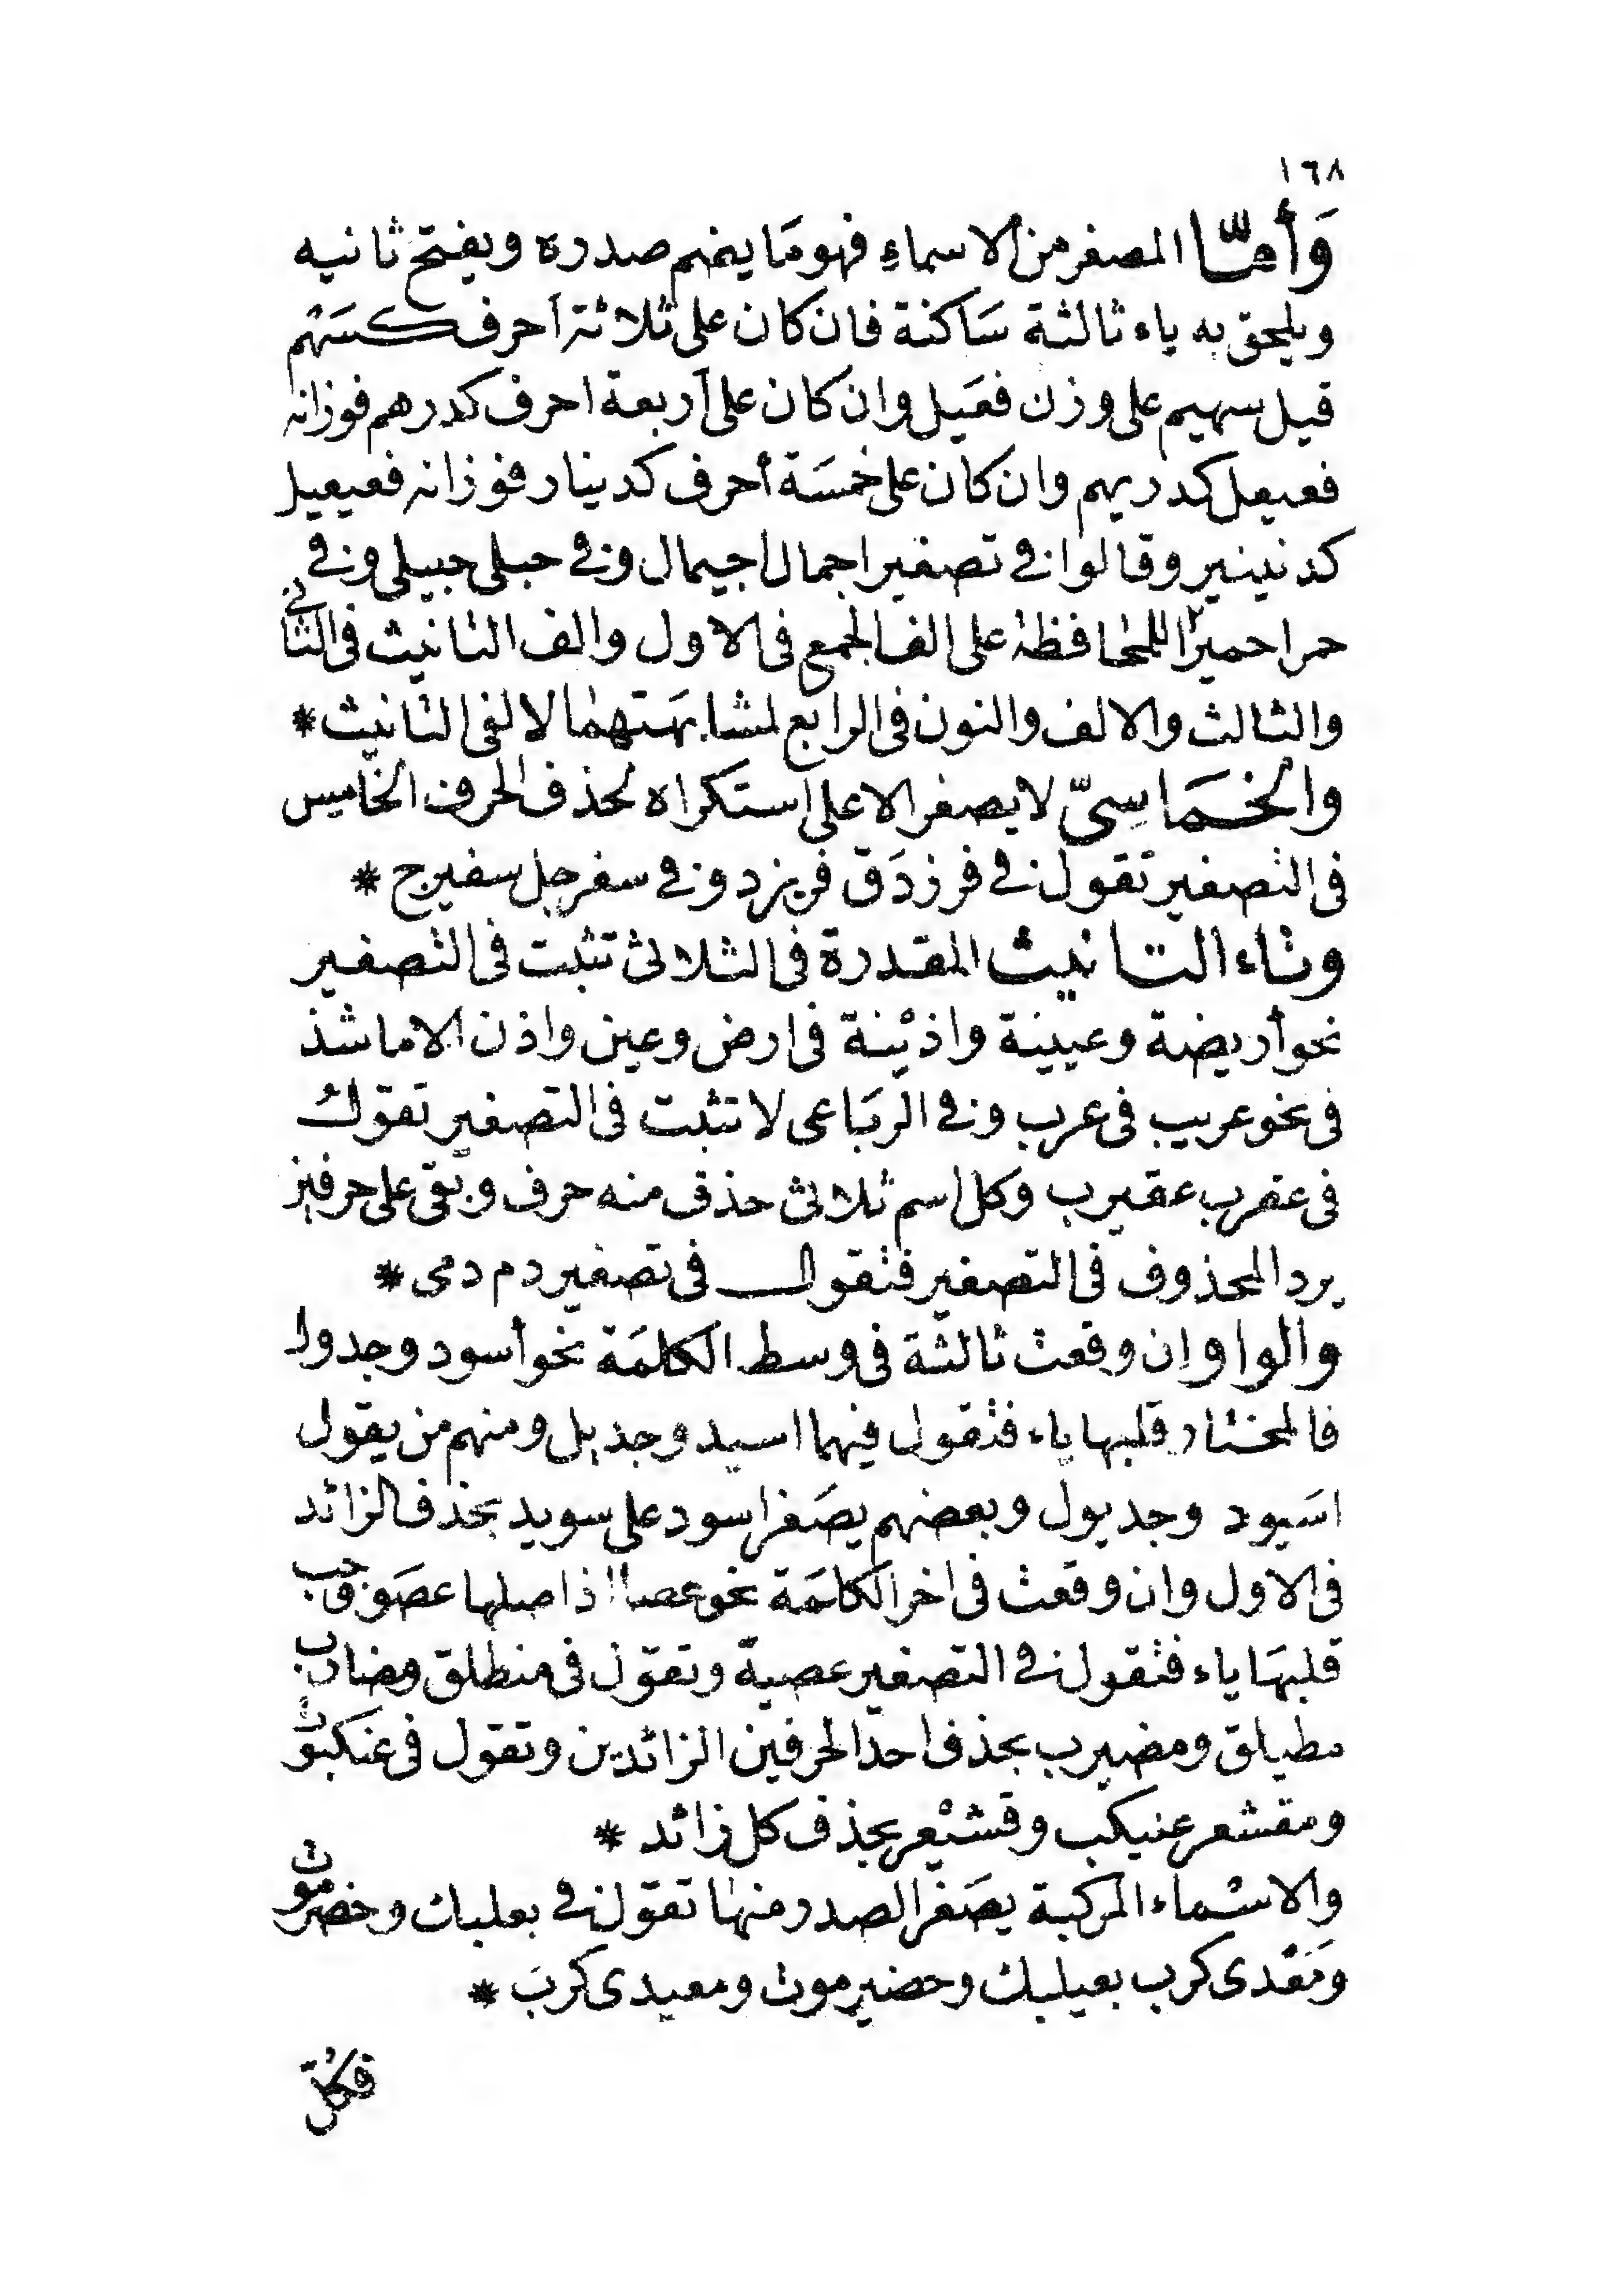 ١٦٨
وَأَمَّا المصغر من الاسماءِ فهو مَا يضم صدره ويفتح ثانيه
ويلحق به ياء ثالثة سَاكنة فان كان على ثلاثة أحرف كسَهْم
قيل سهيم على وزن فعَيل وان كان على أربعة احرف كدرهم فوزانه
فعيعل كدريهم وان كان على خمسَة أحرف كدينار فوزانه فعيعيل
كدنينير وقالوا في تصغير اجمال اجيمال وفي حبلى حبيلى وفي
حمرا حميرا للمحافظة على الف الجمع في الاول والف التانيث في الثاني
والثالث والالف والنون في الرابع لمشابهَتهما لالفي التانيث *
والخمَاسِيّ لا يصغر الا على استكراه لحذف الحرف الخامس
في التصغير تقول في فرزدَق فريزد وفي سفرجل سفيرج *
وتاء التانيث المقدرة في الثلاثي تثبت في التصغير
نحو أريضة وعيينة واذيْنة في ارض وعين واذن الا ما شذ
في نحو عريب في عرب وفي الربَاعي لا تثبت في التصغير تقول
في عقرب عقيرب وكل اسم ثلاثي حذف منه حرف وبقي على حرفين
يرد المحذوف في التصغير فتقول في تصغير دم دمى *
والواو إن وقعت ثالثة في وسط الكلمَة نحو أسود وجدول
فالمختار قلبها ياء فتقول فيهما اسيد وجديل ومنهم من يقول
اسَيود وجديول وبعضهم يصَغر اسود على سويد بحذف الزائد
في الاول وان وقعت في اخر الكلمَة نحو عصا اذ اصلها عصَو وجب
قلبهَا ياء فتقول في التصغير عصيّة وتقول في منطلق ومضارب
مطيلق ومضيرب بحذف احد الحرفين الزائدين وتقول في عنكبوت
ومقشعر عنيكب وقشيْعر بحذف كل زائد *
والاسْماء المركبة يصَغر الصدر منها تقول في بعلبك وحضرموت
ومَعْدى كرب بعيلبك وحضيرموت ومعيدى كربَ *
فكل